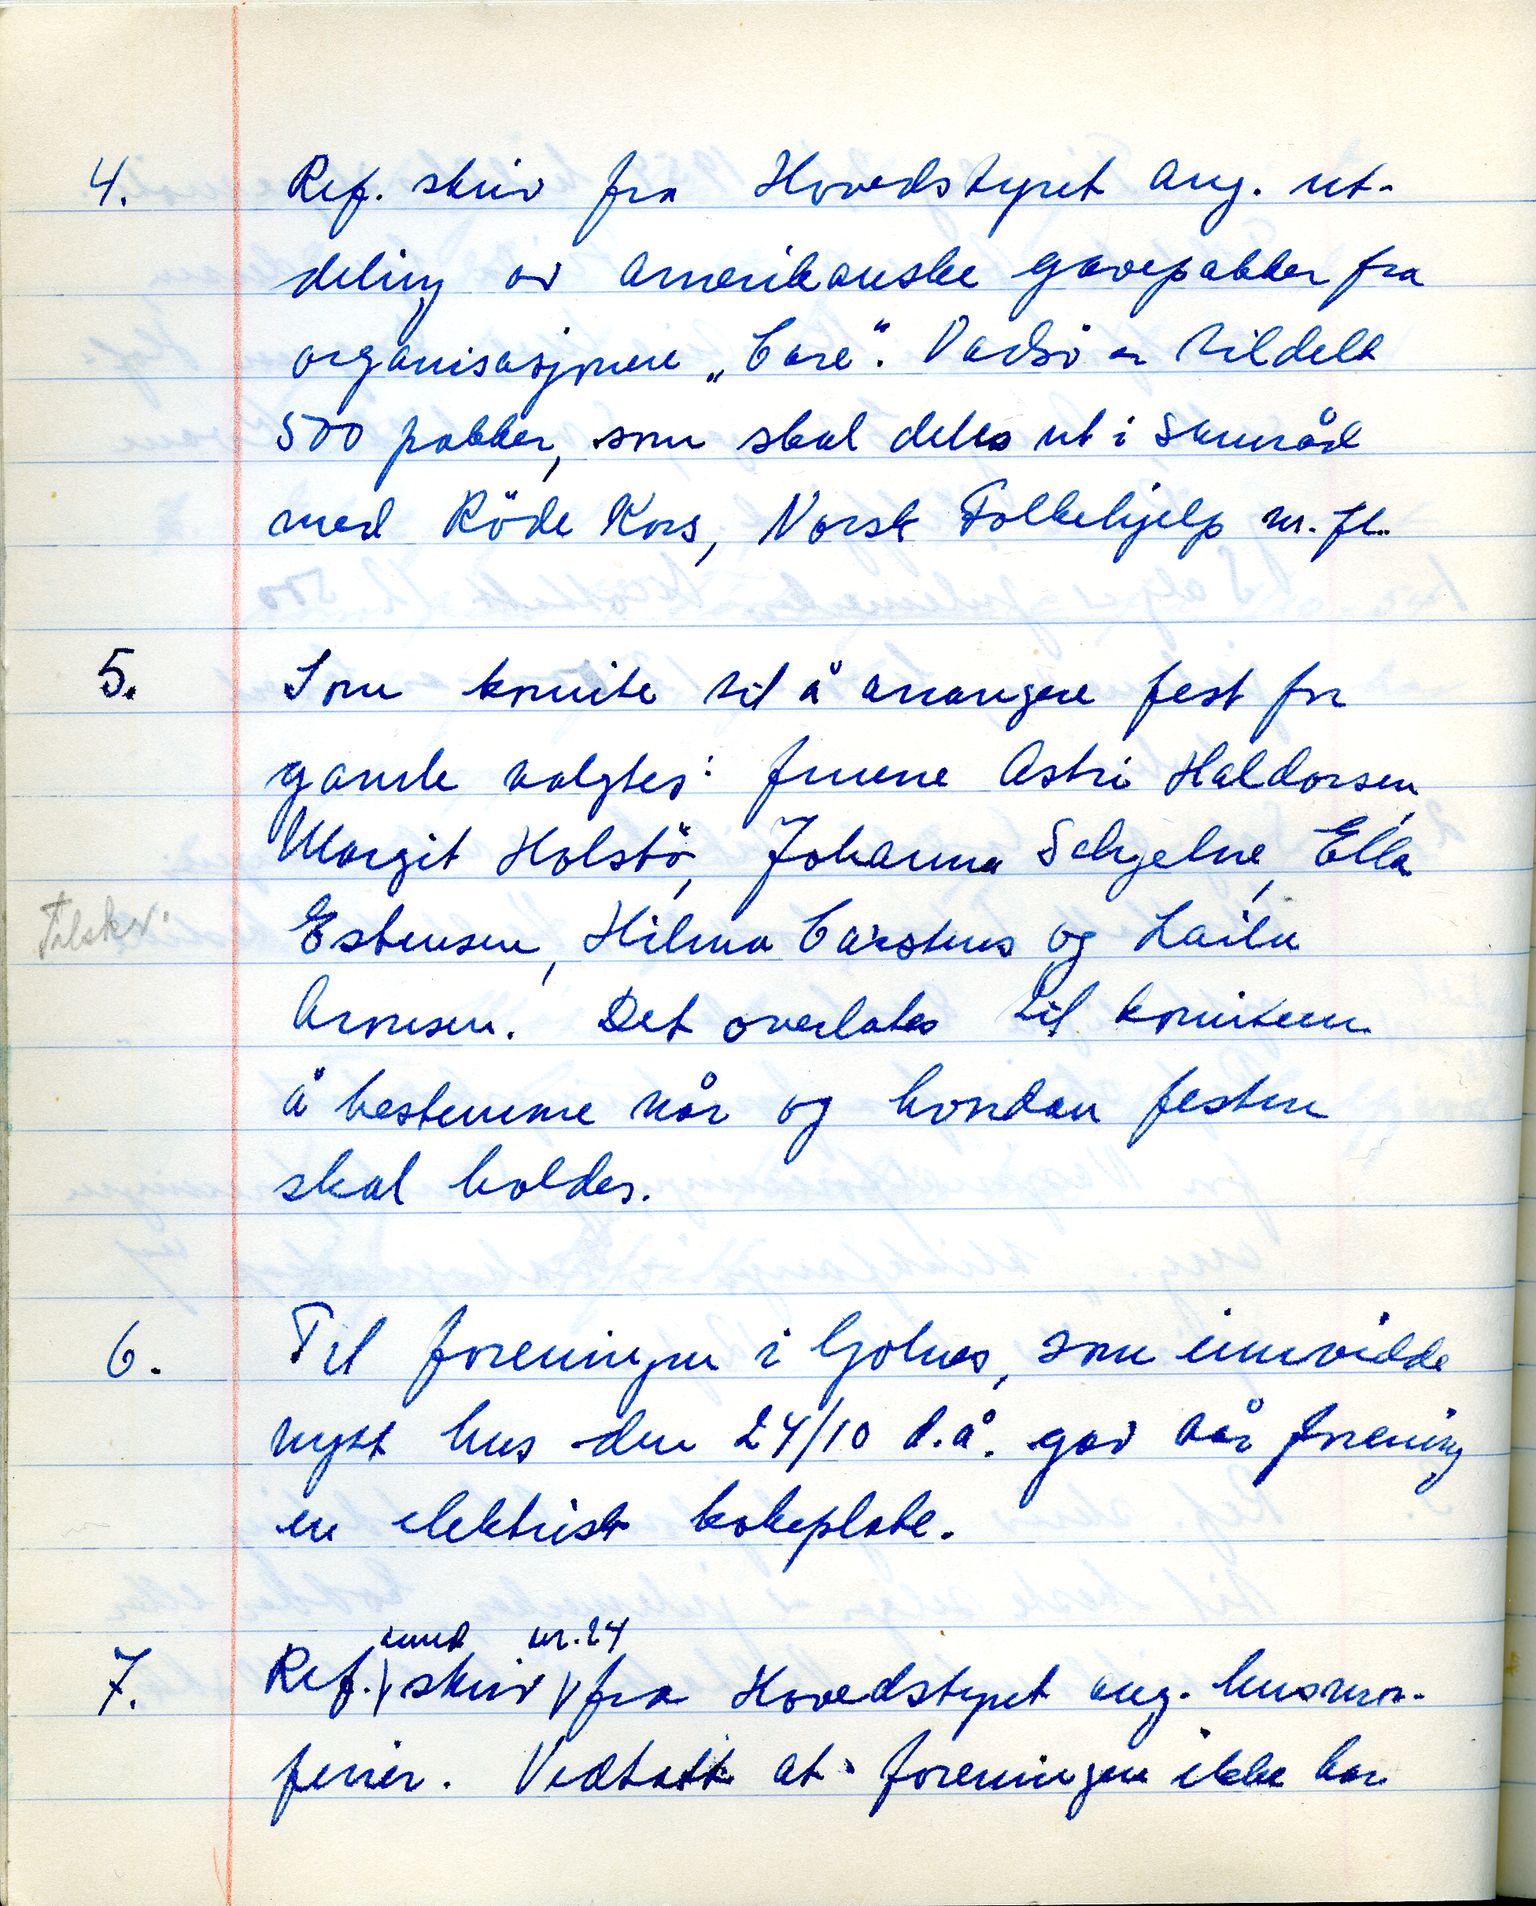 4. Ref. skriv fra Hovedstyret ang. ut-
deling av amerikanske gavepakker fra
organisasjonen „Care". Vadsö er tildelt
500 pakker, som skal deles ut i samråd
med Röde Kors, Norsk Folkehjelp m.fl.
5. Som komite til å arrangere fest for
gamle valgtes: fruene Astri Haldorsen,
Margit Holstö, Johanna Schjelne, Ella
Tilskr.
Estensen, Hilma Carstens og Laila
Aronsen. Det overlates til komiteen
å bestemme når og hvordan festen
skal holdes.
6. Til foreningen i Golnes, som innvidde
nytt hus den 24/10 d.å. gav vår forening
en elektrisk kokeplate.
rund nr. 24
7. Ref. skriv fra Hovedstyret ang. husmor-
ferier. Vedtatt at foreningen ikke kan